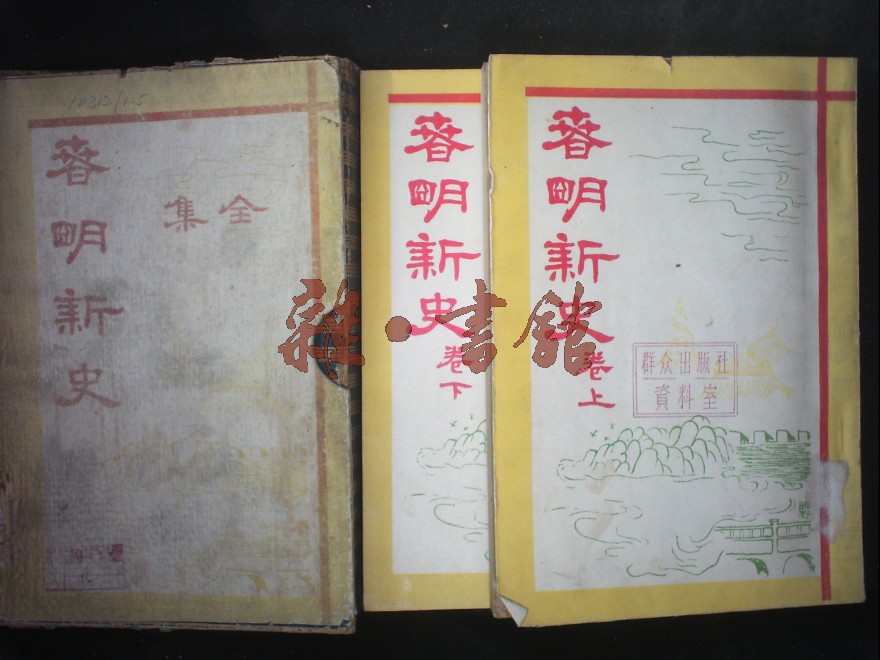 春明新史
全集
春明新史
卷下
春明新史
卷上
群众出版社
資料室
雜·書館